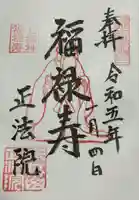 奉拝
令和五年
一月四日
福禄寿
正法院